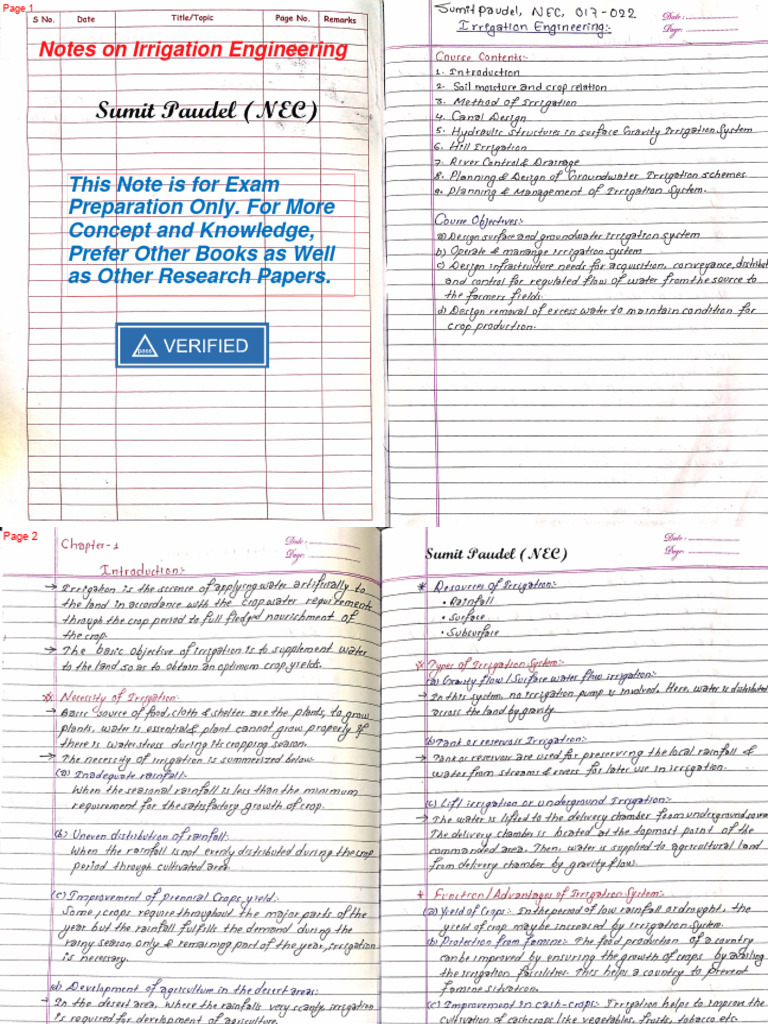 Page 1
S No. Date Title/Topic Page No. Remarks
Notes on Irrigation Engineering
Sumit Paudel (NEC)
This Note is for Exam
Preparation Only. For More
Concept and Knowledge,
Prefer Other Books as Well
as Other Research Papers.
pass VERIFIED
Sumit Paudel, NEC, 017-022
Date:
Irregation Engineering:-
Page:
Course Contents:-
1. Introduction
2. Soil moisture and crop relation
3. Method of Irrigation
4. Canal Design
5. Hydraulic structures in surface Gravity Irrigation System
6. Hill Irrigation
7. River Control & Drainage
8. Planning & Design of Groundwater Irrigation schemes.
9. Planning & Management of Irrigation System.
Course Objectives:-
a) Design surface and groundwater irrigation system
b) Operate & manange irrigation system
c) Design infrastructure needs for acquisition, conveyance, distribut
and control for regulated flow of water from the source to
the farmers fields.
d) Design removal of excess water to maintain condition for
crop production.
Page 2
Chapter-1
Date:
Page:
Introduction:-
→ Irrigation is the science of applying water artificially to
the land in accordance with the crop water requirements
through the crop period to full fledged nourishment of
the crop.
→ The basic objective of irrigation is to supplement water
to the land so as to obtain an optimum crop yields.
Necessity of Irrigation:-
→ Basic source of food, cloth & shelter are the plants, to grow
plants, water is essential & plant cannot grow properly if
there is water stress during its cropping season.
→ The necessity of irrigation is summarized below.
(a) Inadequate rainfall:-
When the seasonal rainfall is less than the minimum
requirement for the satisfactory growth of crop.
(b) Uneven distribution of rainfall:-
When the rainfall is not evenly distributed during the crop
period through cultivated area.
(c) Improvement of prennial Crops yield:-
Some, crops require throughout the major parts of the
year but the rainfall fulfills the demand during the
rainy season only & remaining part of the year, irrigation
is necessary.
(d) Development of agriculture in the desert areas:
→ In the desert area, where the rainfalls very scanly, irrigation
is required for development of agriculture.
Sumit Paudel (NEC)
Date:
Page:
* Resources of Irrigation:-
• Rainfall
• Surface
• Subsurface
Types of Irrigation System:-
(a) Gravity flow / Surface water flow irrigation:-
→ In this system, no irrigation pump is involved. Here, water is distributed
across the land by gravity.
(b) Tank or reservoir Irrigation:-
→ Tank or reservoir are used for preserving the local rainfall &
water from streams & rivers for later use in irrigation.
(c) Lift irrigation or underground Irrigation:-
→ The water is lifted to the delivery chamber from underground
The delivery chamber is located at the topmost point of the
commanded area. Then, water is supplied to agricultural land
from delivery chamber by gravity flow.
* Function / Advantages of Irrigation System:-
(a) Yield of Crops:- In the period of low rainfall or drought, the
yield of crop may be increased by irrigation system.
(b) Protection from famine:- The food production of a country
can be improved by ensuring the growth of crops by availing
the irrigation facilities. This helps a country to prevent
famine situation.
(c) Improvement in cash-crops: Irrigation helps to improve the
cultivation of cashcrops like vegetables, fruits, tobacco etc.